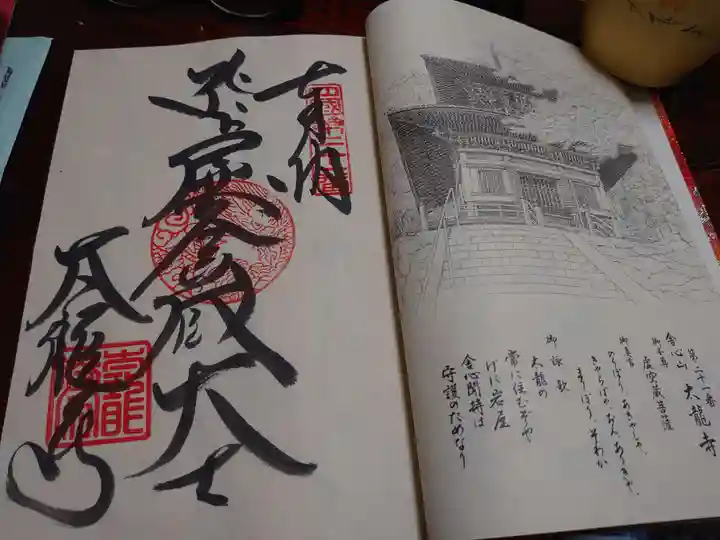 奉納
虚空蔵大士
太龍寺
第二十一番
舎心山 太龍寺
御本尊 虚空蔵菩薩
御真言
のうぼう、あきゃしゃ、
きゃらばや、おん、ありきゃ、
まりぼり、そわか
御詠歌
太龍の
常に住むぞや
げに岩屋
舎心聞持は
守護のためなり